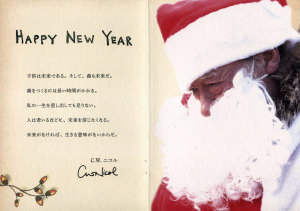 HAPPY NEW YEAR
子供は未来である。そして、森も未来だ。
森をつくるには長い時間がかかる。
私の一生を差し出しても足りない。
人は老いるほどに、未来を信じたくなる。
未来がなければ、生きる意味がないからだ。
C.W. ニコル
CWNicol